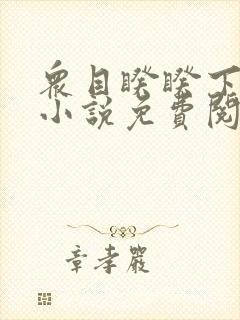 眾目睽睽下
小說免費閱
章孝嚴